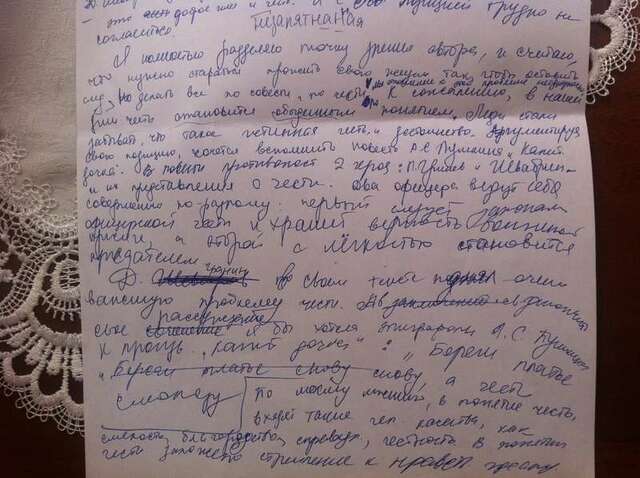 это
трудно не
согласиться.
незапятнаная
Я полностью разделяю точку зрения автора, и считаю,
что нужно стараться прожить свою жизнь так, чтобы оставить
делать все по совести, по чести. К сожалению, в наше
время честь становится обыденным понятием. Люди стали
забывать, что такое истинная честь и достоинство. Аргументируя
свою позицию, хочется вспомнить повесть А.С Пушкина „Капит.
дочка". В повести противопост 2 героя: П.Гринев и Швабрин
и их представления о чести. Два офицера ведут себя
совершенно по-разному. первый следует законам
офицерской чести и хранит верность воинской
присяге, а второй с лёгкостью становится
предателем
Д. Гранин в своем тексте поднял очень
важную проблему чести.
свое рассуждение я бы хотела эпиграфом А.С. Пушкина
к прозе „Капит дочка": „Береги платье
„береги платье снову снову, а честь
смолоду
По моему мнению, в понятие честь,
входят такие чел. качества, как
смелость, благородство, справедл., честность В понятии
чести заложено стремление к нравст